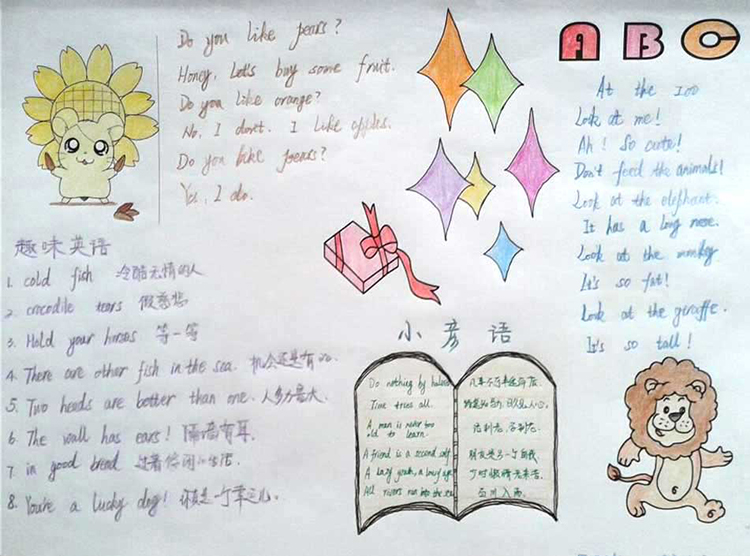 Do you like pears?
Honey, Let's buy some fruit.
Do you like orange?
No, I don't. I like apples.
Do you like pears?
Yes, I do.
ABC
At the zoo
Look at me!
Ah! So cute!
Don't feed the animals!
Look at the elephant.
It has a long nose.
Look at the monkey
It's so fat!
Look at the giraffe.
It's so tall!
趣味英语
1. cold fish 冷酷无情的人
2. crocodile tears 假慈悲
3. Hold your horses 等一等
4. There are other fish in the sea. 机会还是有的.
5. Two heads are better than one. 人多力量大.
6. The wall has ears! 隔墙有耳.
7. in good bread 过着悠闲的生活
8. You're a lucky dog! 你真是个幸运儿.
小彦语
Do nothing by halves
Time tries all.
A man is never too
old to learn.
A friend is a second self.
A lazy youth, a lousy age
All rivers run into the sea.
活到老,学到老.
百川入海.